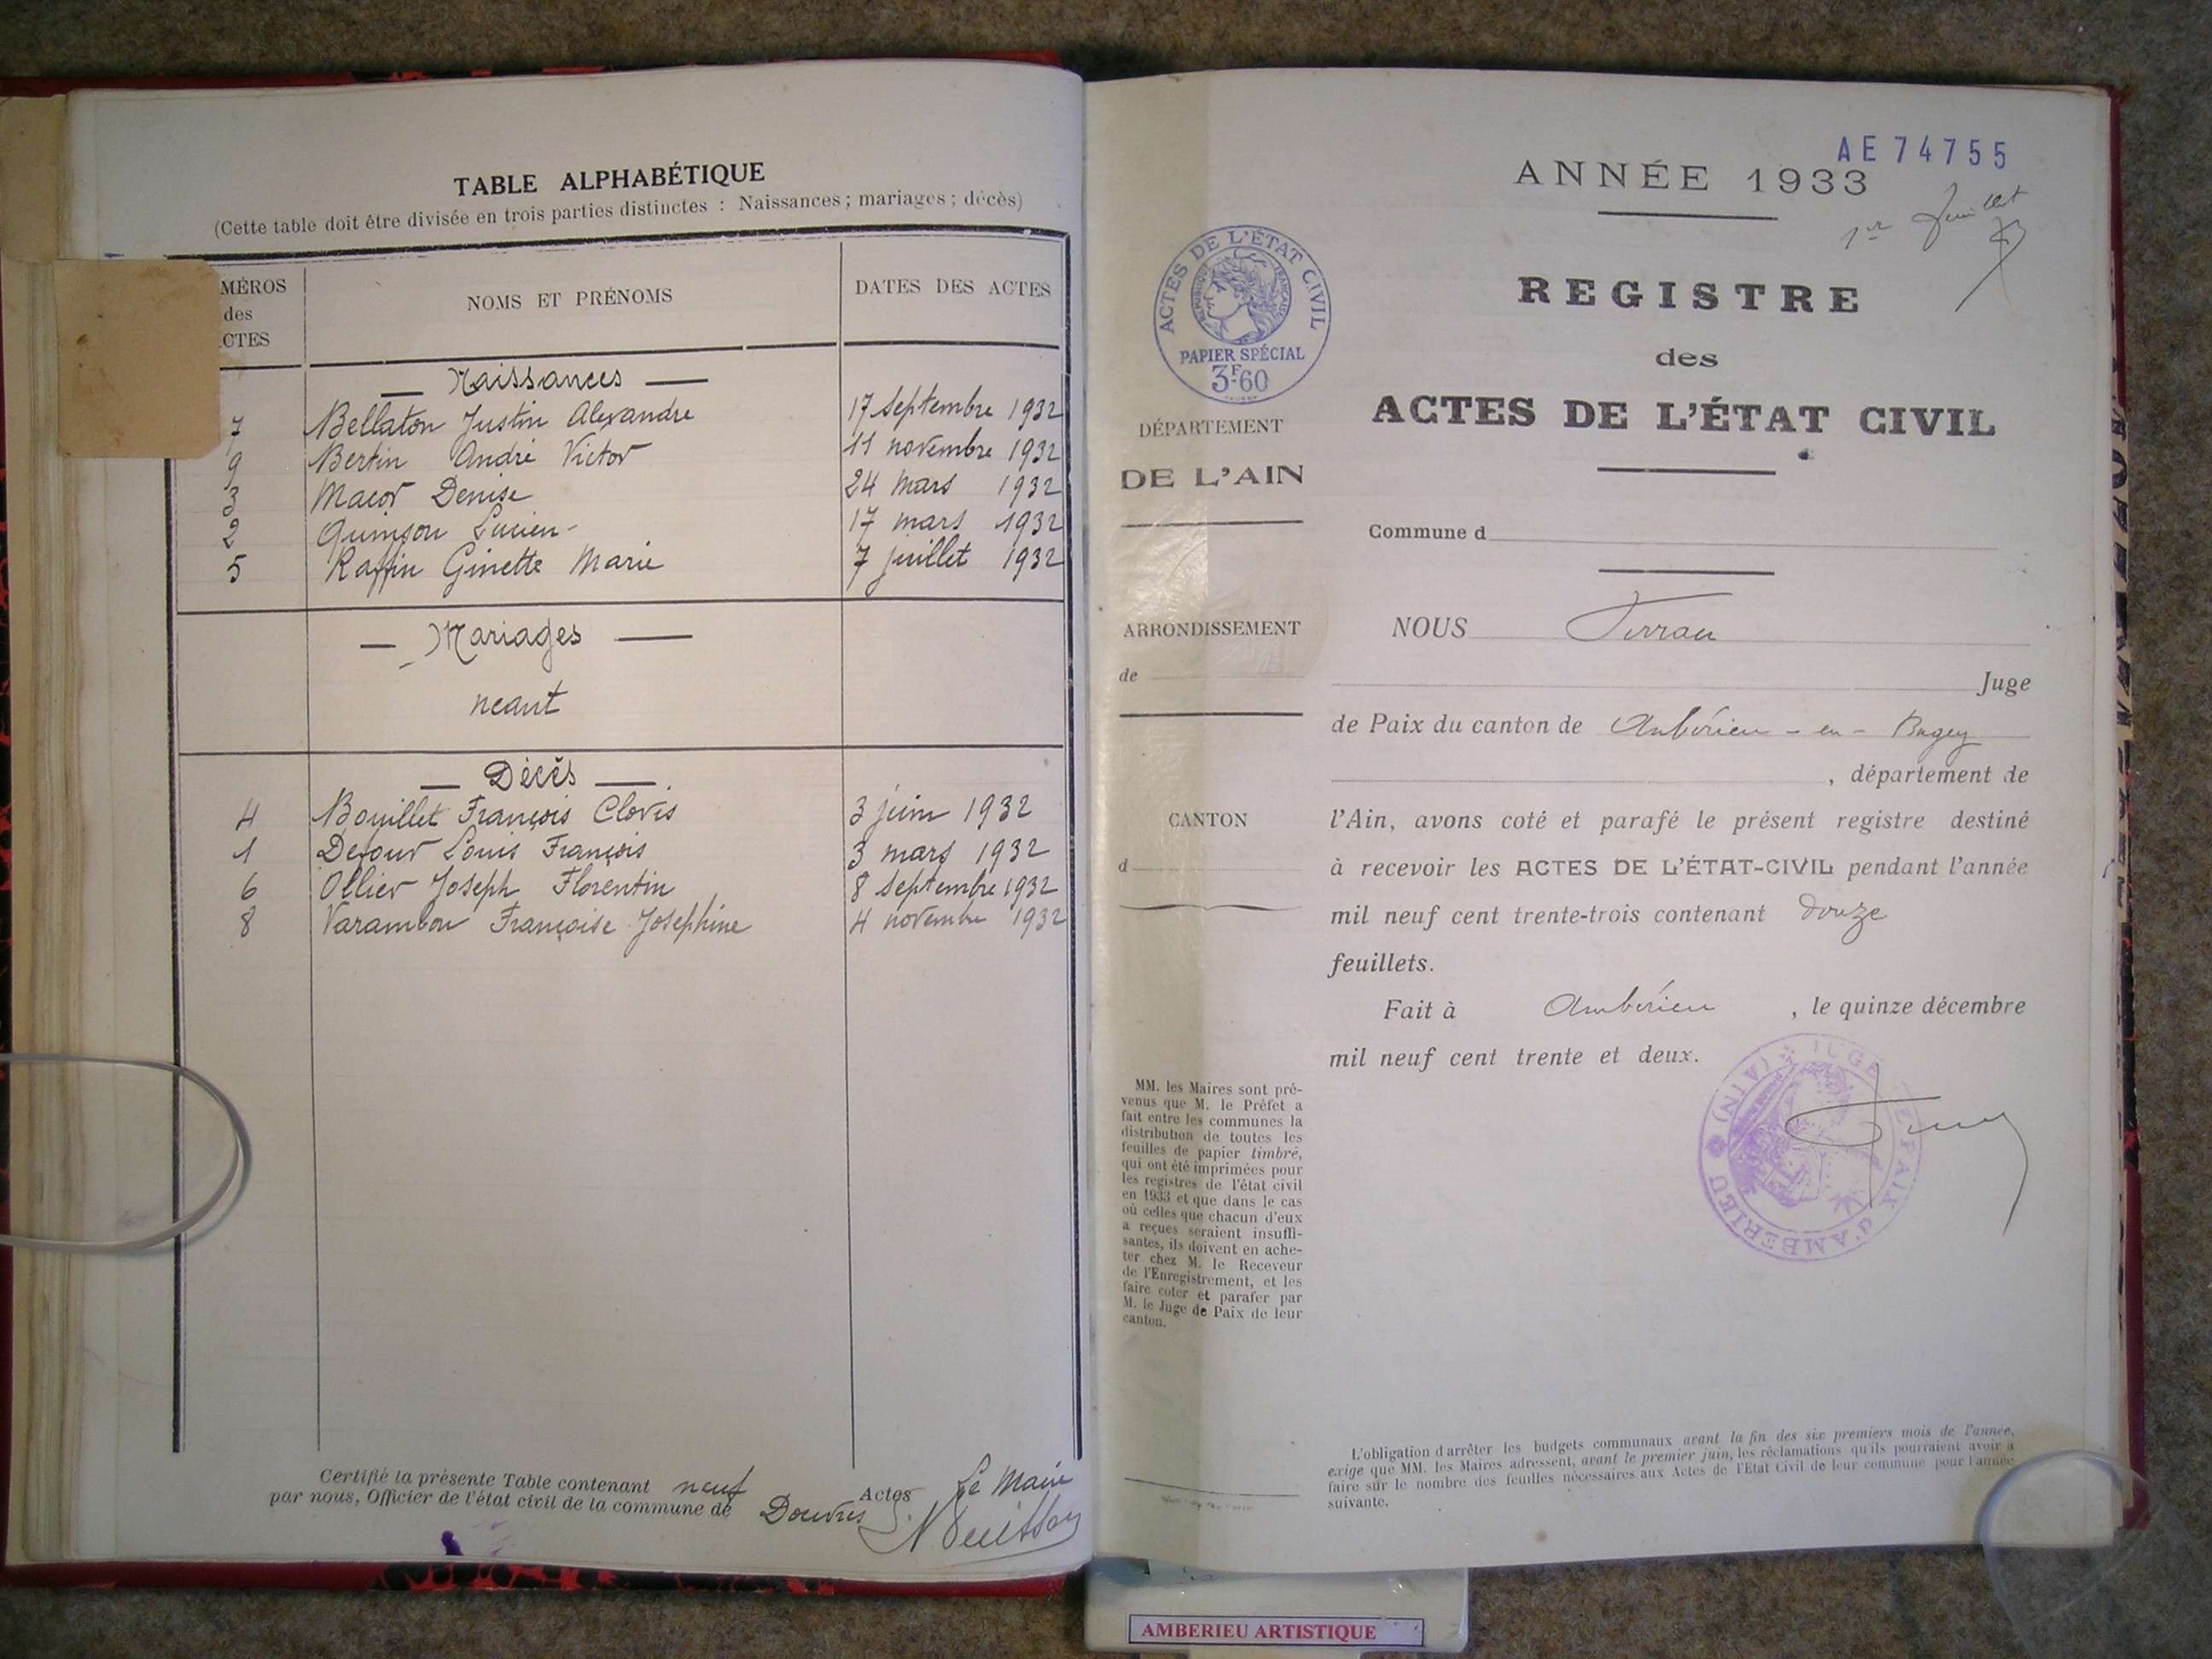 TABLE ALPHABÉTIQUE
(Cette table doit être divisée en trois parties distinctes : Naissances ; mariages ; décès)
MÉROS
des
CTES
NOMS ET PRÉNOMS
DATES DES ACTES
Naissances
7 Bellaton Justin Alexandre 17 septembre 1932
9 Bertin André Victor 11 novembre 1932
3 Macor Denise 24 mars 1932
2 Quinson Lucien 17 mars 1932
5 Raffin Ginette Marie 7 juillet 1932
Mariages
neant
Décès
4 Bouillet François Clovis 3 juin 1932
1 Dejour Louis François 3 mars 1932
6 Ollier Joseph Florentin 8 septembre 1932
8 Varambon Françoise Josephine 4 novembre 1932
Certifié la présente Table contenant neuf Actes
par nous, Officier de l'état civil de la commune de Douvres
Le Maire
AE 74755
ANNÉE 1933
1er Juillet
REGISTRE
des
ACTES DE L'ÉTAT CIVIL
ACTES DE L'ÉTAT CIVIL
RÉPUBLIQUE FRANÇAISE
PAPIER SPÉCIAL
3F.60
DÉPARTEMENT
DE L'AIN
ARRONDISSEMENT
de
CANTON
d
MM. les Maires sont pré-
venus que M. le Préfet a
fait entre les communes la
distribution de toutes les
feuilles de papier timbré,
qui ont été imprimées pour
les registres de l'état civil
en 1933 et que dans le cas
où celles que chacun d'eux
a reçues seraient insuffi-
santes, ils doivent en ache-
ter chez M. le Receveur
de l'Enregistrement, et les
faire coter et parafer par
M. le Juge de Paix de leur
canton.
Commune d
NOUS
Juge
de Paix du canton de Ambérieu-en-Bugey
, département de
l'Ain, avons coté et parafé le présent registre destiné
à recevoir les ACTES DE L'ÉTAT-CIVIL pendant l'année
mil neuf cent trente-trois contenant douze
feuillets.
Fait à Ambérieu , le quinze décembre
mil neuf cent trente et deux.
JUGE PAIX d'AMBERIEU (AIN)
L'obligation d'arrêter les budgets communaux avant la fin des six premiers mois de l'année,
exige que MM. les Maires adressent, avant le premier juin, les réclamations qu'ils pourraient avoir à
faire sur le nombre des feuilles nécessaires aux Actes de l'Etat Civil de leur commune pour l'année
suivante.
AMBERIEU ARTISTIQUE